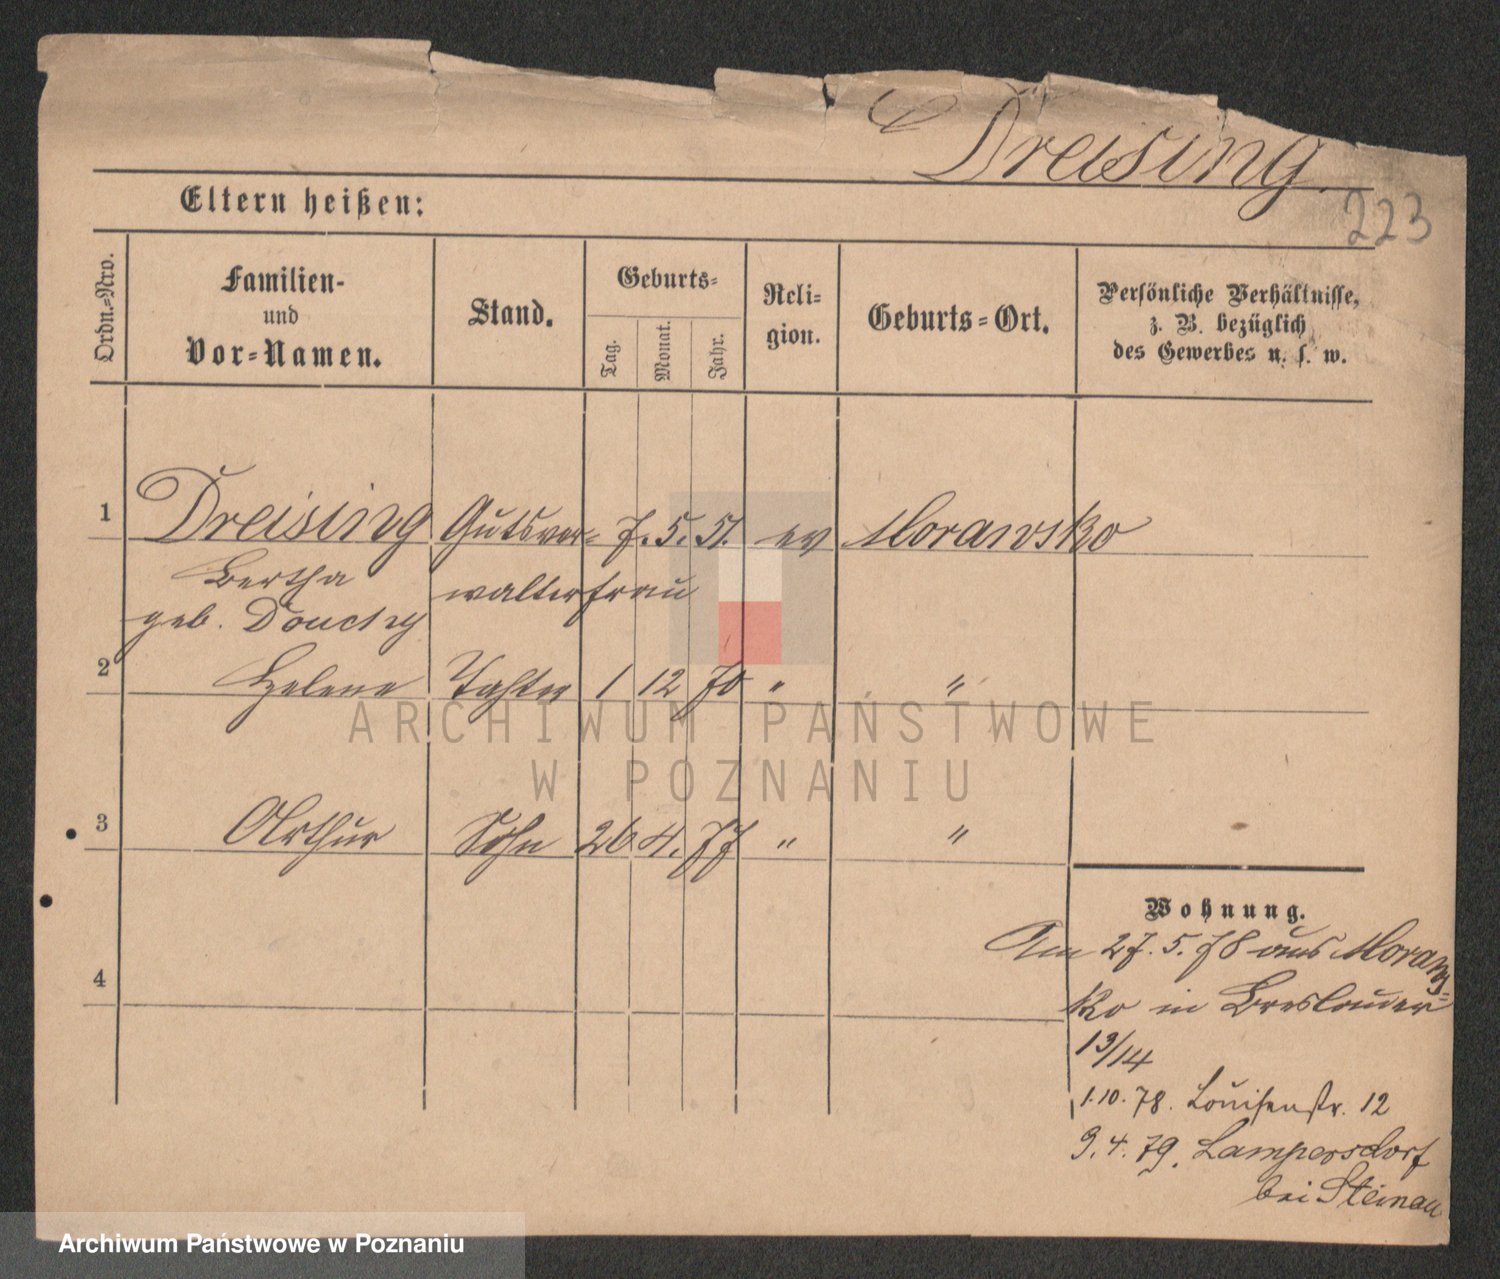 Dreising.
223
Eltern heißen:
Ordn.-Nro.
Familien-
und
Vor-Namen.
Stand.
Geburts-
Tag.
Monat.
Jahr.
Reli-
gion.
Geburts-Ort.
Persönliche Verhältnisse,
z. B. bezüglich
des Gewerbes u. s. w.
1 Dreising Gutsver- 7. 5. 51. ev Morawsko
Bertha walterfrau
geb.
2 Helene Tochter 1 12 70 " "
ARCHIWUM PAŃSTWOWE
W POZNANIU
3 Arthur Sohn 26 4. 77 " "
Wohnung.
Am 27. 5. 78 aus Moraws-
4
ko in Breslauer
13/14
1.10.78. Louisenstr. 12
9.4.79. Lampersdorf
bei Steinau
Archiwum Państwowe w Poznaniu